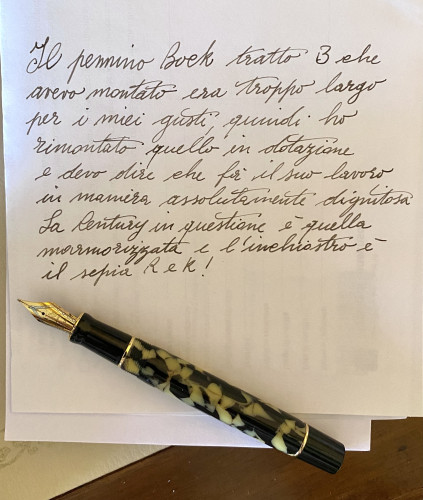 Il pennino Bock tratto B che
avevo montato era troppo largo
per i miei gusti, quindi ho
rimontato quello in dotazione
e devo dire che fa il suo lavoro
in maniera assolutamente dignitosa
La Century in questione è quella
marmorizzata e l'inchiostro è
il sepia R e K!